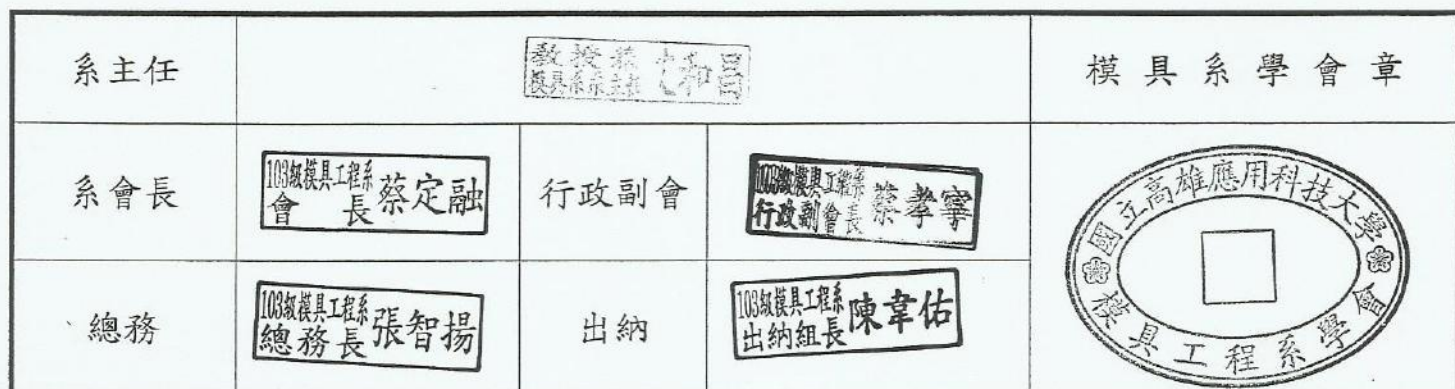 系主任
教授兼
模具系系主任
和昌
模具系學會章
系會長
103級模具工程系
會長 蔡定融
行政副會
103級模具工程系
行政副會長 蔡孝寧
國立高雄應用科技大學
模具工程系學會
總務
103級模具工程系
總務長 張智揚
出納
103級模具工程系
出納組長 陳韋佑